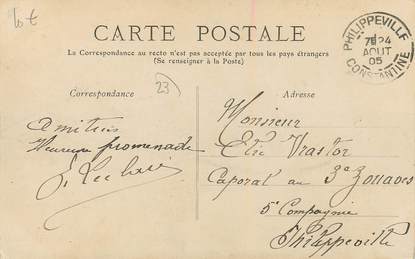 10 €
CARTE POSTALE
La Correspondance au recto n'est pas acceptée par tous les pays étrangers
(Se renseigner à la Poste)
PHILIPPEVILLE
24
AOUT
05
CONSTANTINE
Correspondance
23
Adresse
Amitiés
Heureuse promenade
Monsieur
Elie
Caporal au 3e Zouaves
5e Compagnie
Philippeville